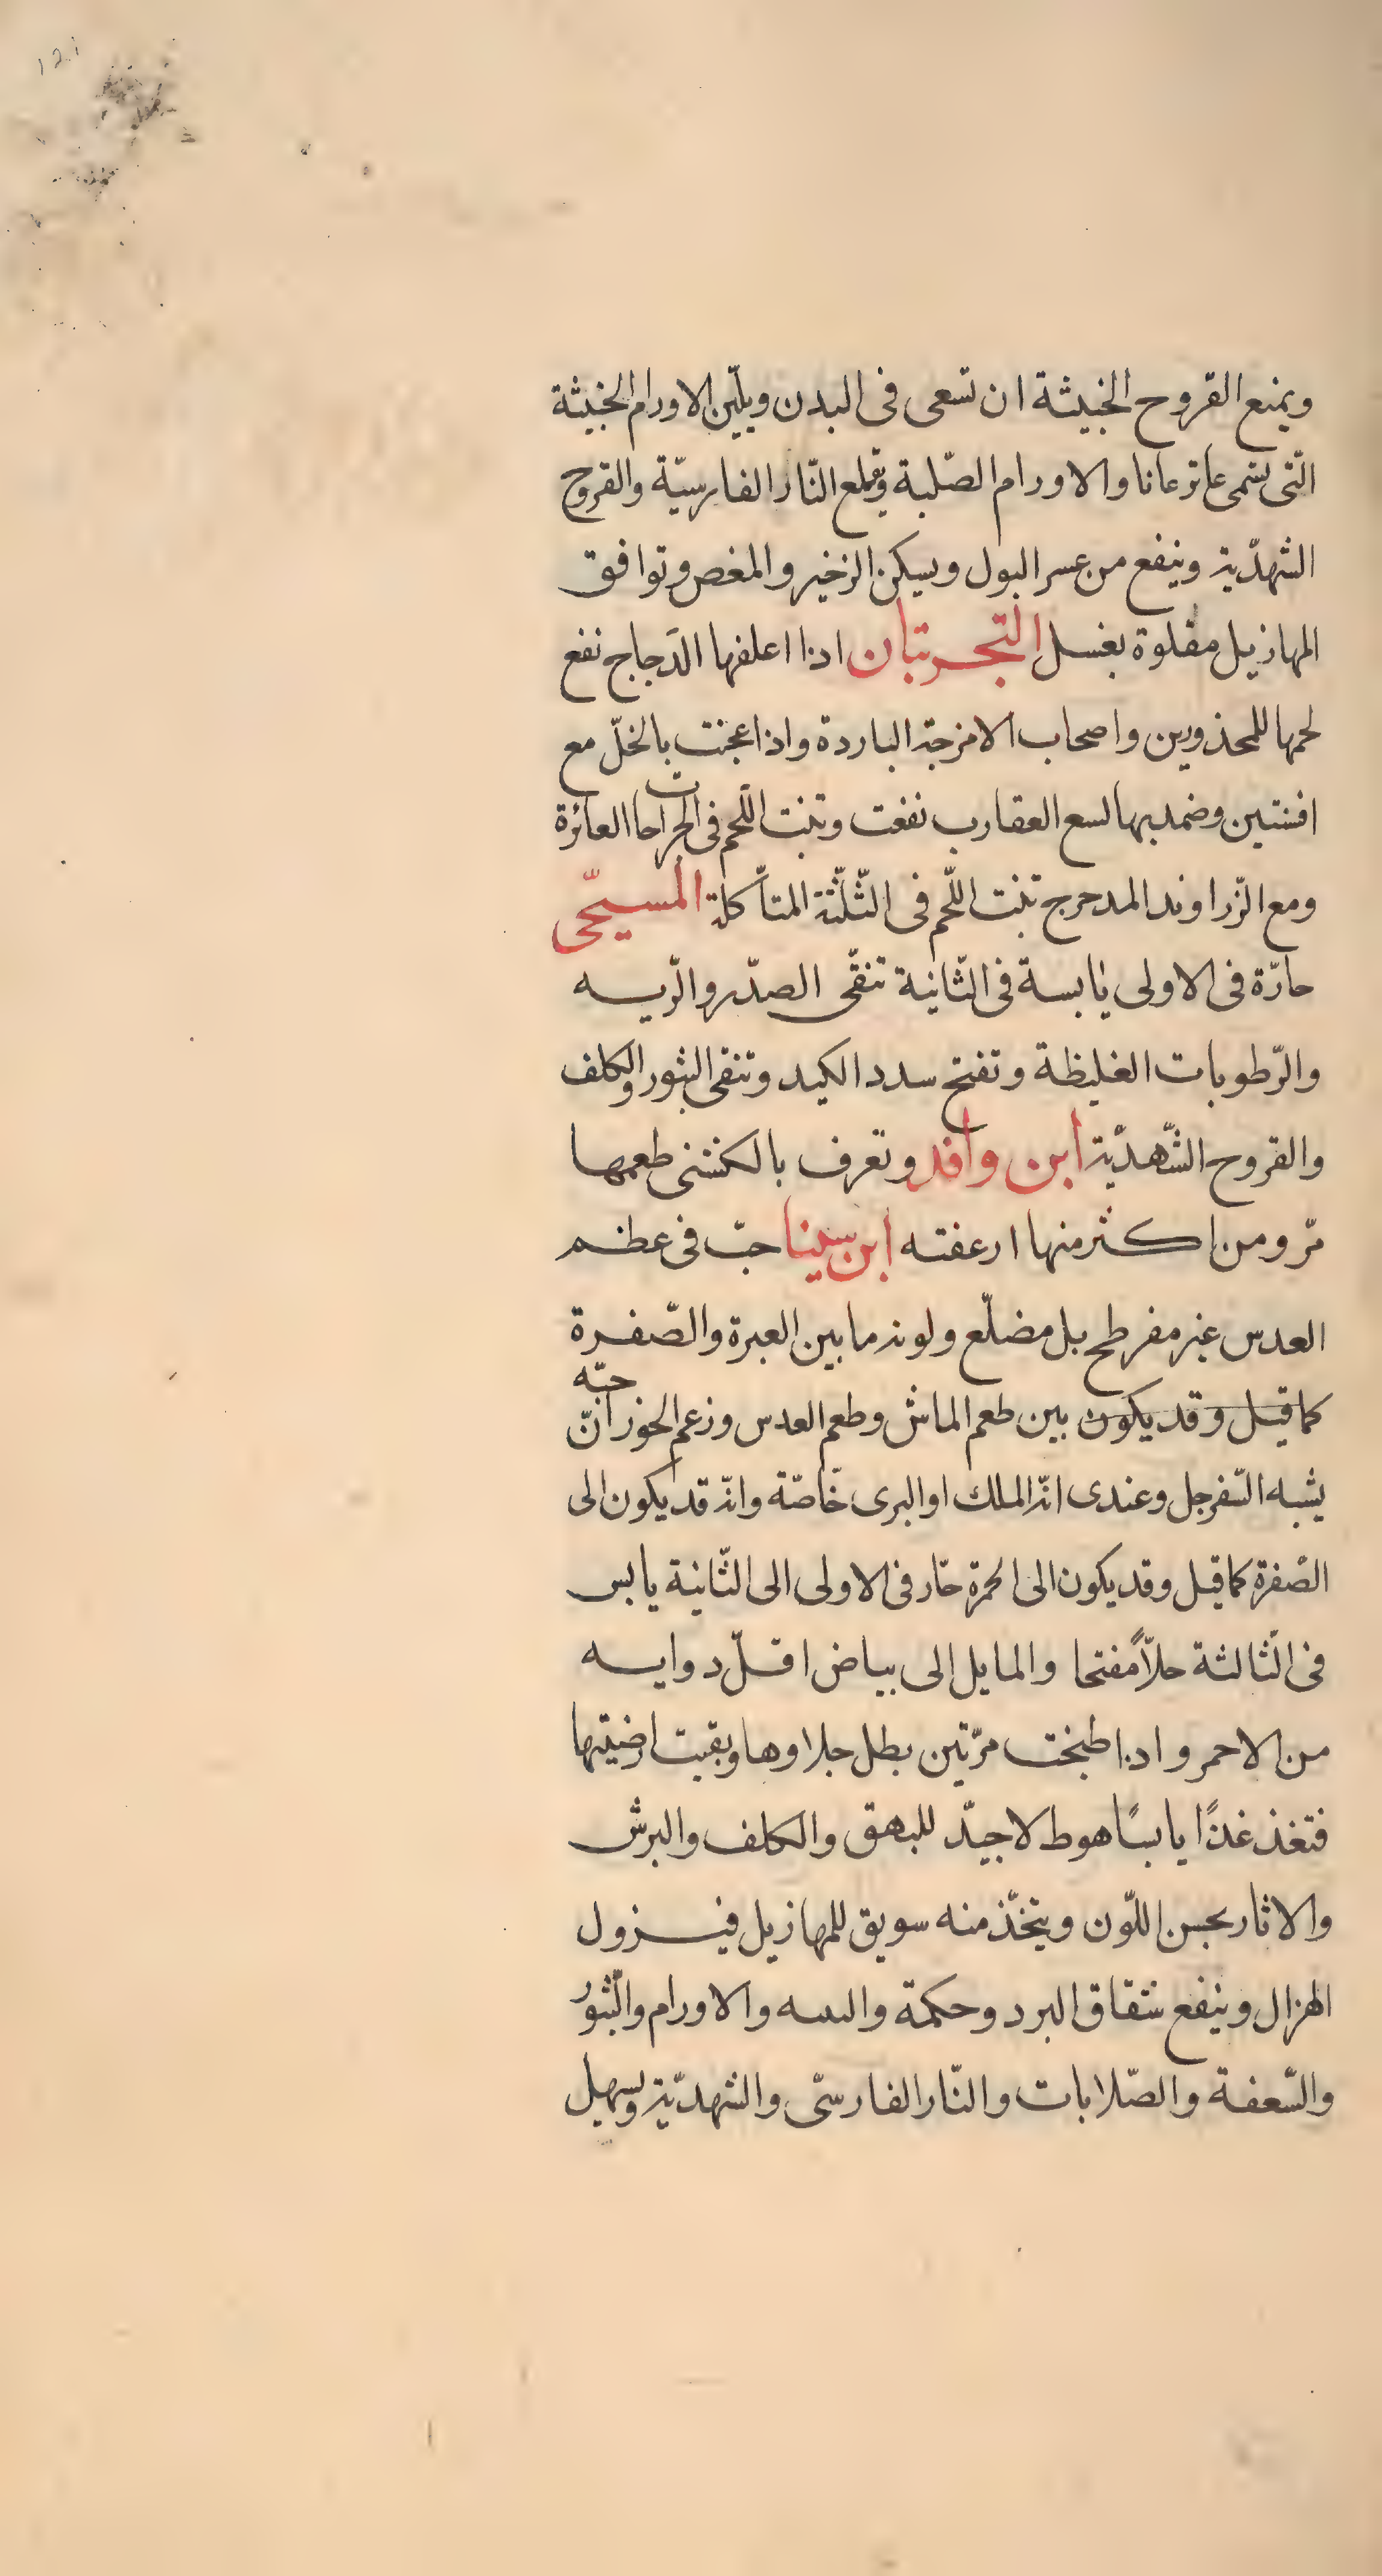 ويمنع القروح الخبيثة ان تسعى فى البدن ويلّين الاورام الخبيثة
الّتى تسمى عاترعانا والاورام الصّلبة ويقلع النّار الفارسيّة والقروح
الشهدّية وينفع من عسر البول ويسكن الزخير والمغص وتوافق
المهازيل مقلوة بغسل التّجربتان اذا اعلفها الدَجاج نفع
لحمها للمحذورين واصحاب الامزجة الباردة واذا عجنت بالخلّ مع
افسنتين وضمد بها لسع العقارب نفعت وتنبت اللّحم فى الجراحات العائرة
ومع الزّراوند المدحرج تنبت اللّحم فى الثّلّثة المتأكلة المسيحّى
حارّة فى الاولى يابسة فى الثّانية تنقّى الصدّر والرّيه
والرّطوبات الغليظة وتفتح سدد الكبد وتنقى البثور والكلف
والقروح الشّهدّية ابن وافد وتعرف بالكشنى طعمها
مرّ ومن اكثر منها ارعفته ابن سينا حبّ فى عظم
العدس غير مفرطح بل مضلّع ولونه ما بين العبرة والصّفرة
كما قيل وقد يكون بين طعم الماش وطعم العدس وزعم الخوز انّ حبّه
يشبه السّفرجل وعندى انّه الملك او البرى خّاصّة وانّه قد يكون الى
الصّفرة كما قيل وقد يكون الى الحمرة حّار فى الاولى الى الثّانية يابس
فى الثّالثة حلاًّ مفتحا والمايل الى بياض اقلّ دوايه
من الاحمر واذا طبخت مرّتين بطل جلاوها وبقيت ارضيّتها
فتغذ غذًا يابسًا هوط لا جيّد للبهق والكلف والبرش
والاثار بحسن اللّون ويتخّذ منه سويق للمهازيل فيزول
الهزال وينفع شقاق البرد وحكمة والاورام والّبثور
والسّعفة والصّلابات والنّار الفارسّى والشهدّية ويسهل